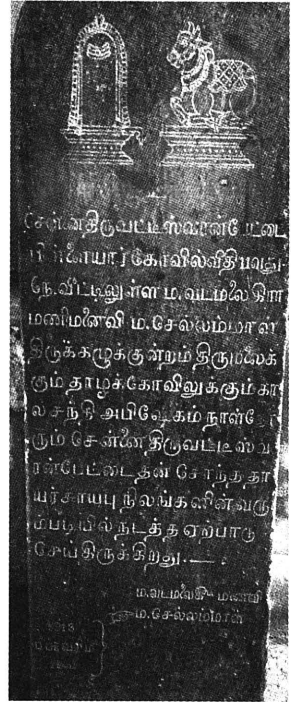 சென்னைதிருவட்டீஸ்வரன்பேட்டை
பிள்ளையார்கோவில்வீதி
நெ.வீட்டிலுள்ள ம.வடமலை
மணிமனைவி ம.செல்லம்மாள்
திருக்கழுக்குன்றம் திருமலைக்
கும் தாழக்கோவிலுக்கும்கா
லசந்தி அபிஷேகம் நாள்தோ
ரும் சென்னை திருவட்டீஸ்வ
ரன்பேட்டை தன் சொந்த தா
நிலங்களின்வரு
ம்படியில் நடத்த ஏற்பாடு
செய்திருக்கிறது.
ம.செல்லம்மாள்